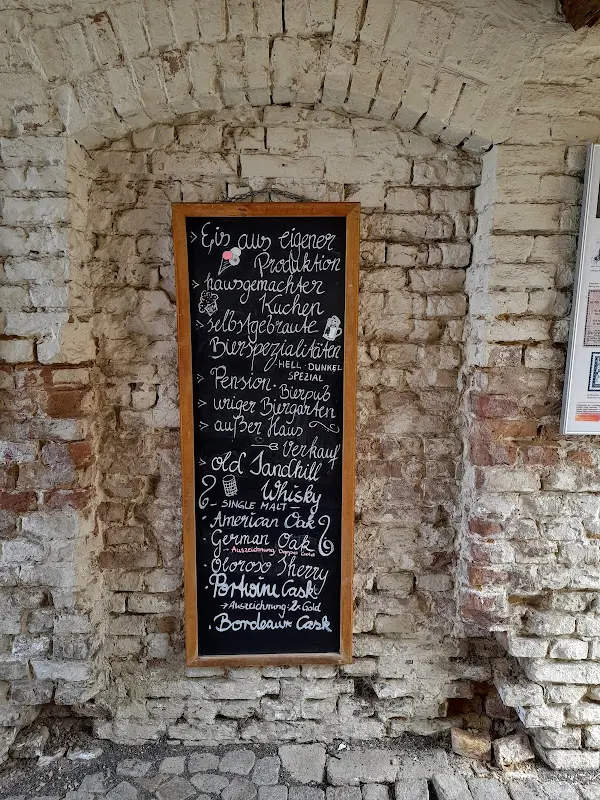 > Eis aus eigener
Produktion
> hausgemachter
Kuchen
> selbstgebraute
Bierspezialitäten
HELL · DUNKEL
SPEZIAL
> Pension · Bierpub
> uriger Biergarten
> außer Haus
Verkauf
> old Sandhill
Whisky
- SINGLE MALT -
· American Oak
· German Oak
→ Auszeichnung Gold
· Oloroso Sherry
· Portwine Cask
→ Auszeichnung: 2x Gold
· Bordeaux Cask